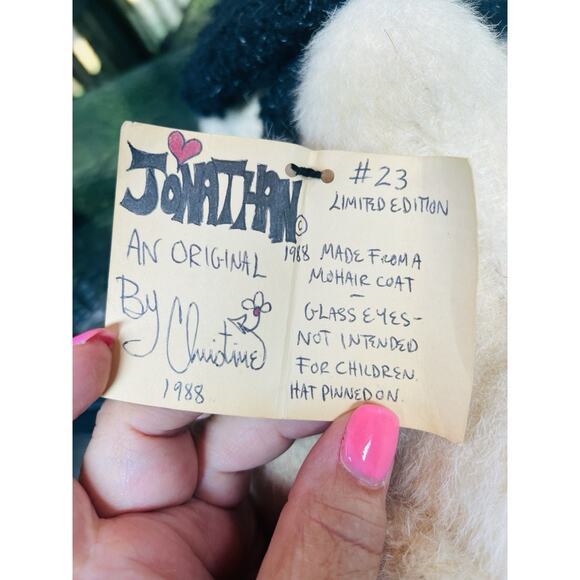 JONATHAN ©
1988
AN ORIGINAL
By Christine
1988
#23
LIMITED EDITION
MADE FROM A
MOHAIR COAT
–
GLASS EYES-
NOT INTENDED
FOR CHILDREN.
HAT PINNED ON.